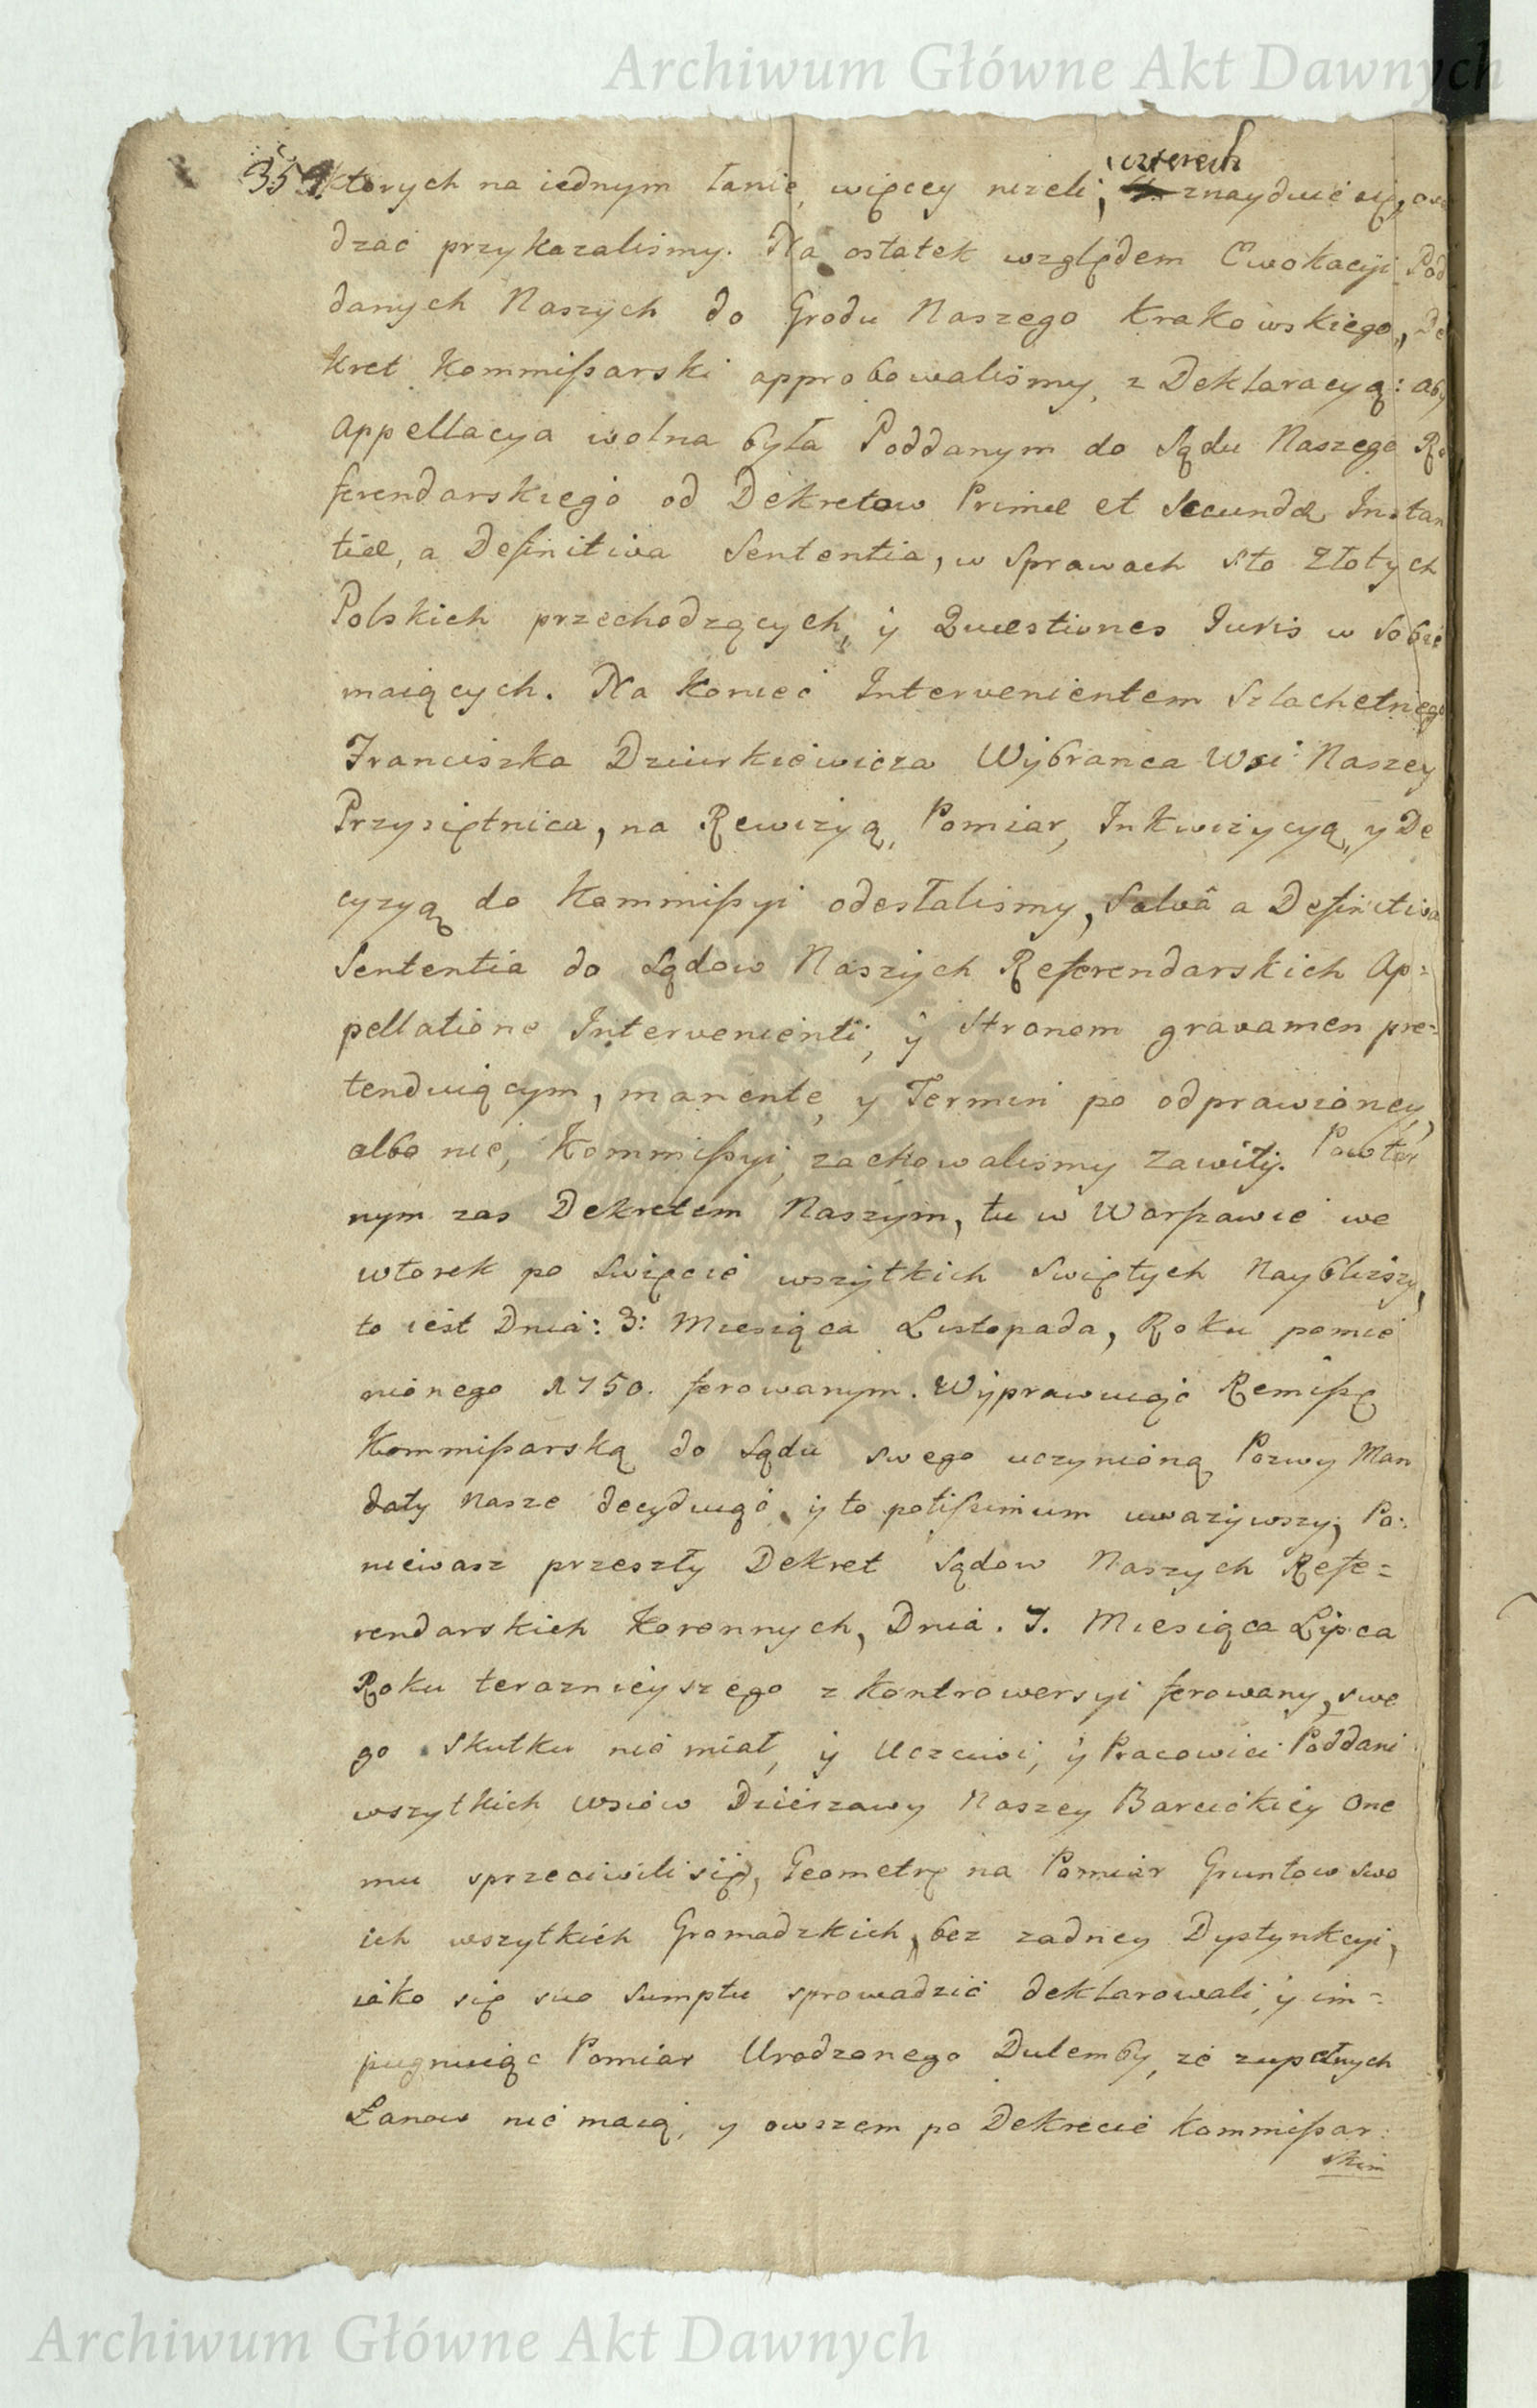 Archiwum Główne Akt Dawnych
359. ktorych na iednym łanie, więcey nizeli, czterech znayduie się, osa
dzać przykazalismy. Na ostatek względem Ewokacyi Pod
danych Naszych do Grodu Naszego Krakowskiego, De
kret Kommißarski approbowalismy, z Deklaracyą: aby
Appellacya wolna była Poddanym do Sądu Naszego Re
ferendarskiego od Dekretow Primæ et Secundæ Instan
tiæ, a Definitiva Sententia, w Sprawach sto Złotych
Polskich przechodzących, y Quæstiones Iuris w Sobie
maiących. Na koniec Intervenientem Szlachetnego
Franciszka Dziurkiewicza Wybranca Wsi Naszey
Przysiętnica, na Rewizyą, Pomiar, Inkwizycyą, y De
cyzyą do Kommißyi odesłalismy, Salvâ a Definitiva
Sententia do Sądow Naszych Referendarskich Ap=
pellatione Intervenienti, y Stronom gravamen pre=
tenduiącym, manente, y Termin po odprawioney,
albo nie, Kommißyi, zachowalismy Zawity. Powtor
nym zas Dekretem Naszym, tu w Warszawie we
wtorek po Swięcie wszytkich Swiętych Naybliższy,
to iest Dnia: 3: Miesiąca Listopada, Roku pomie
nionego 1750. ferowanym. Wyprawuiąc Remißę
Kommißarską do Sądu swego uczynioną Pozwy Man
daty Nasze decyduiąc, y to potißimum uwazywszy, Po=
niewasz przeszły Dekret Sądow Naszych Refe=
rendarskich Koronnych, Dnia. 7. Miesiąca Lipca
Roku teraznieyszego z Kontrowersyi ferowany, swe
go Skutku nie miał, y Uczciwi, y Pracowici Poddani
wszytkich Wsiow Dzierzawy Naszey Barcickiey One
mu sprzeciwili się, Geometrę na Pomiar Gruntow swo
ich wszytkich Gromadzkich, bez zadney Dystynkcyi,
iako się suo Sumptu sprowadzić deklarowali, y im=
pugnuiąc Pomiar Urodzonego Dulemby, ze zupełnych
Łanow nie maią, y owszem po Dekrecie Kommißar:
skim
Archiwum Główne Akt Dawnych